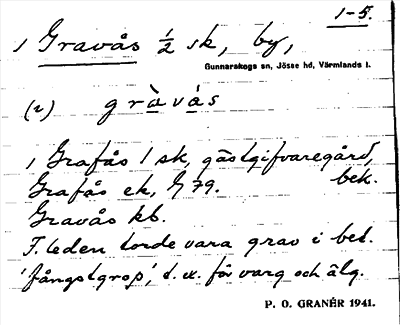 1-5.
1 Gravås ½ sk, by,
Gunnarskogs sn, Jösse hd, Värmlands l.
(2) gràvås
1 Grafås 1 sk, gästgifvaregård,
Grafås ek, G 79. bek.
Gravås kb.
F. leden torde vara grav i bet.
'fångstgrop', t. ex. för varg och älg.
P. O. GRANÉR 1941.